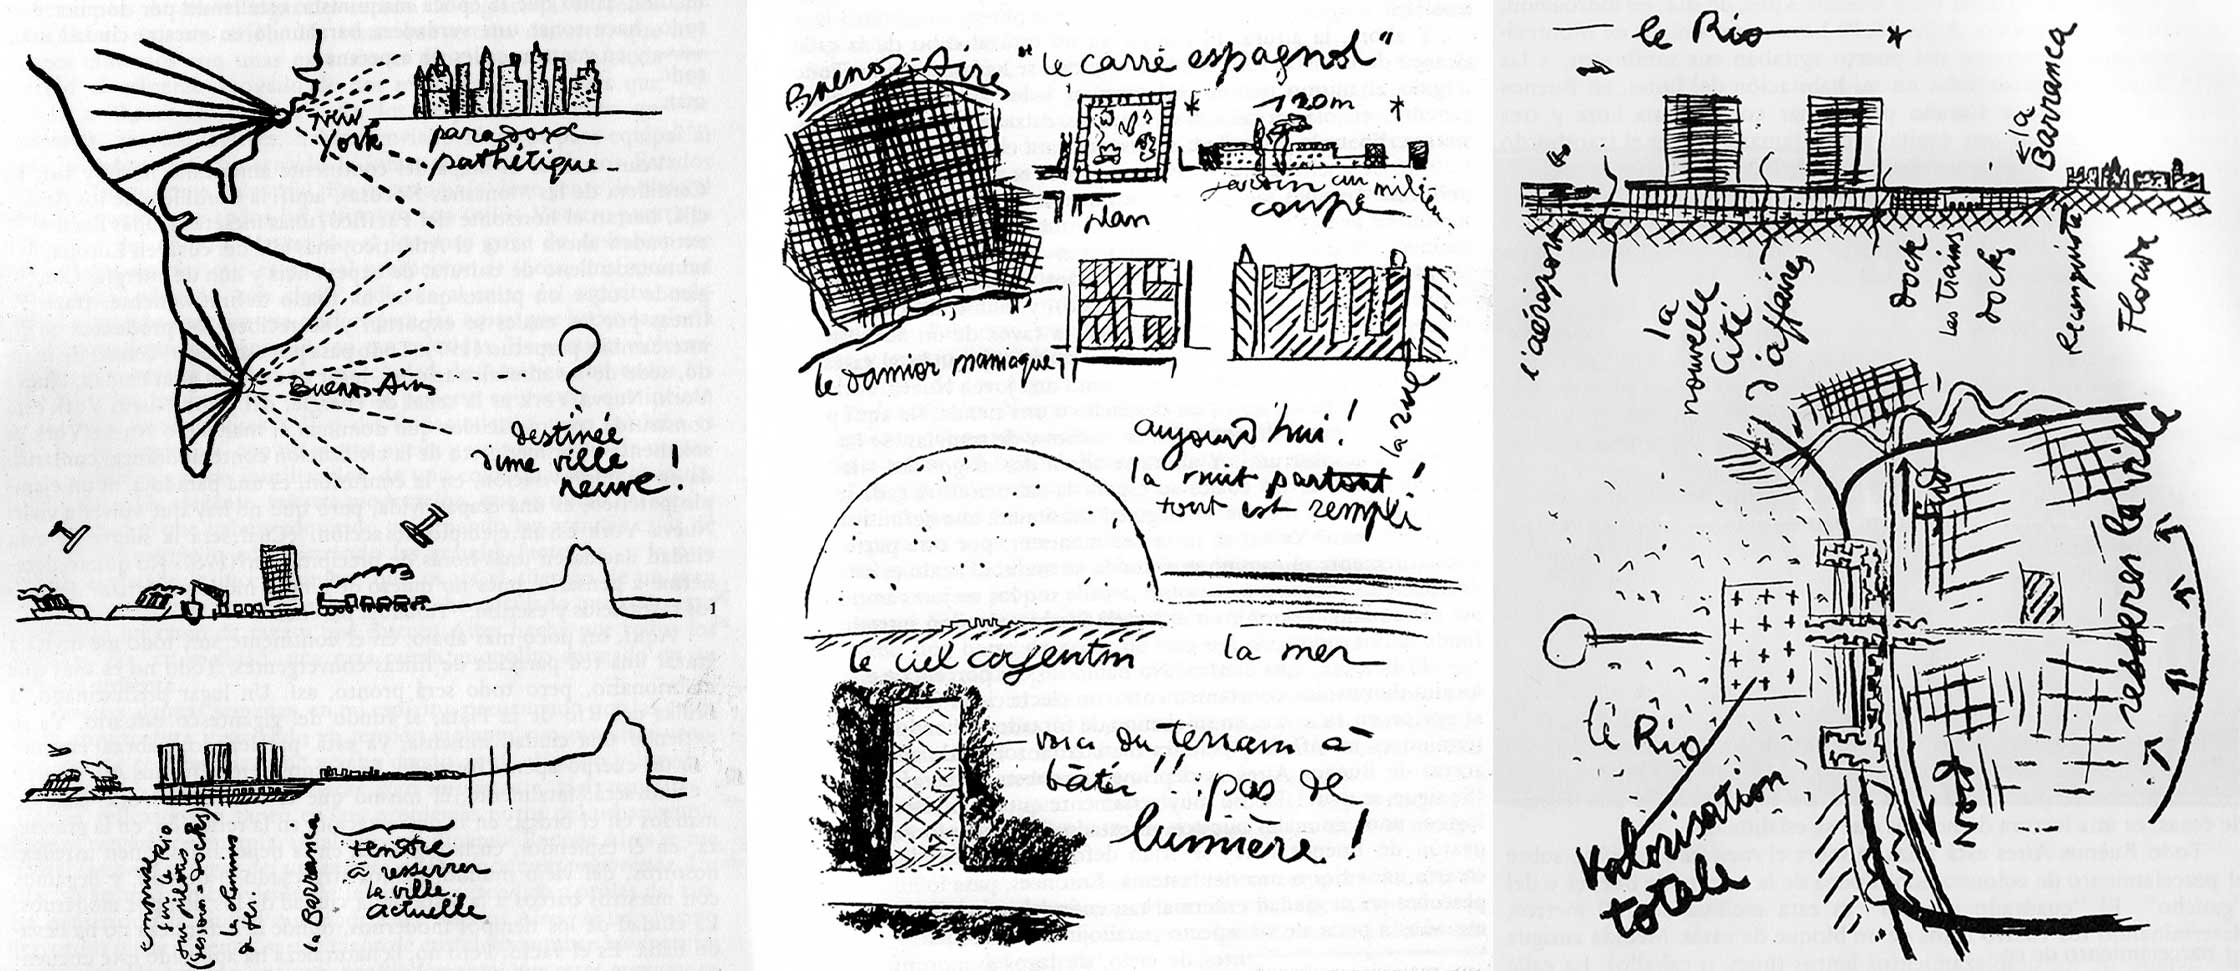 New
York
paradoxe
pathétique
Buenos-Aires
destinée
d'une ville
neuve!
emprise
sur le Rio
sur pilotis
(dessous = docks)
le chemin
de fer
la Barranca
tendre
à
resserrer
la ville
actuelle
Buenos-Aires
"le carré espagnol"
120m
plan
jardin au milieu
coupe
le damier maniaque!
la rue
aujourd'hui!
la nuit partout!
tout est rempli
le ciel argentin
la mer
voici du terrain à
bâtir!! pas de
lumière!
le Rio
la
Barranca
l'aéroport
la
nouvelle
Cité
d'affaires
dock
les trains
docks
Reconquista
Florida
Sud
resserrer la ville
le Rio
Valorisation
totale
Nord